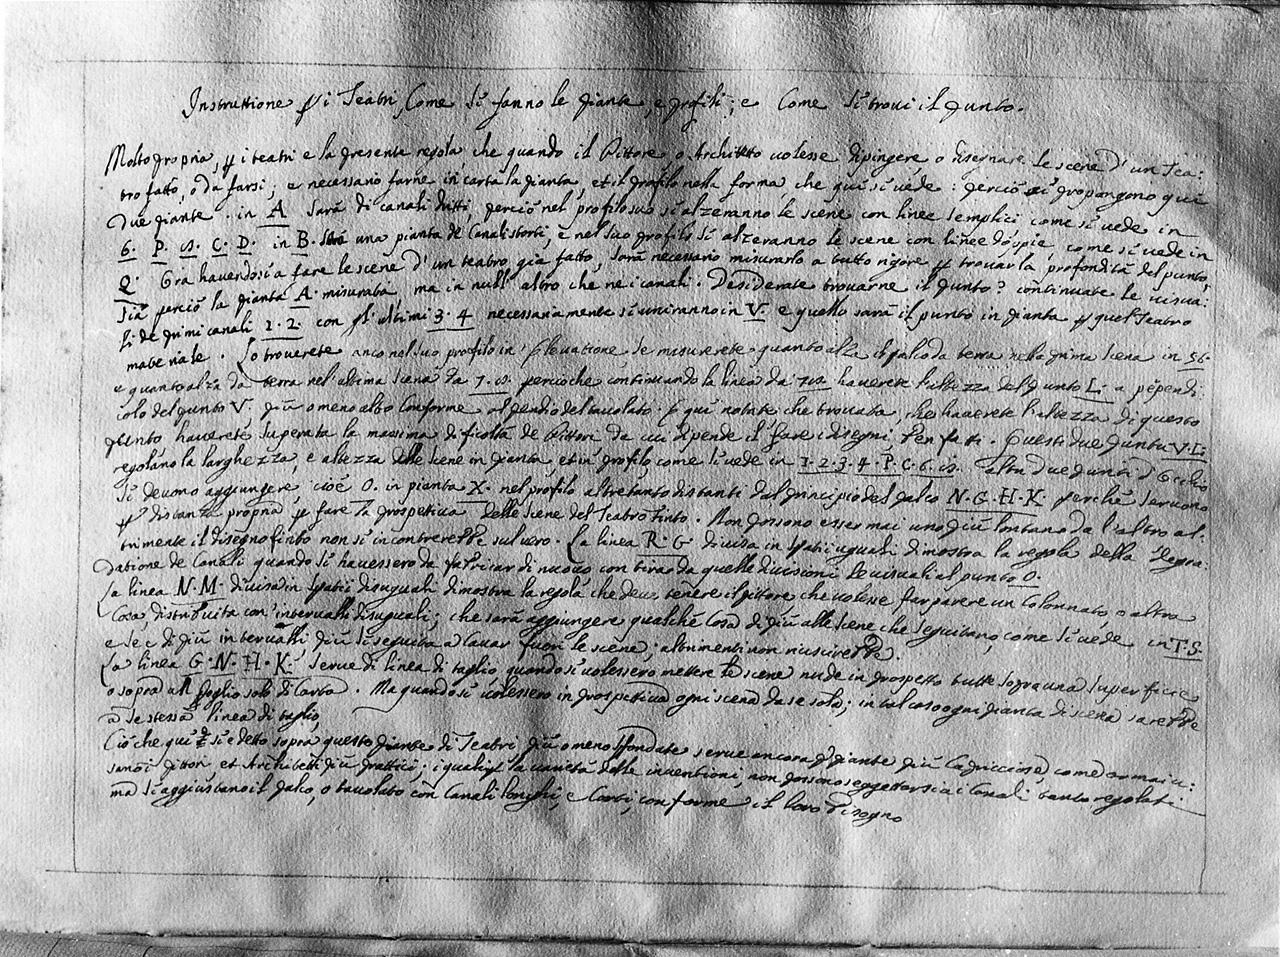 Instruttione p i Teatri, Come si fanno le piante, e profili; e Come si trovi il punto.
Molto propria, p i teatri e la presente regola che quando il Pittore, o Architetto volesse dipingere, o disegnare le scene d'un Tea:
tro fatto, ò da farsi; e necessario farne in carta la pianta, et il profilo nella forma che qui si vede: perciò si propongono qui
due piante. in A sarà di canali dritti, perciò nel profilo suo si alzeranno le scene con linee semplici come si vede in
6. P. C. D. in B. una pianta de Canali storti, e nel suo profilo si alzeranno le scene con linee doppie, come si vede in
Q. Ora havendosi a fare le scene d'un teatro già fatto, sarà necessario misurarlo a tutto rigore p trovar la profondità del punto,
sia perciò la pianta A misurata, ma in null'altro che ne i canali. Desiderate trovarne il punto? continuate le visua:
li de primi canali 1. 2. con gl'ultimi 3. 4 necessariamente si uniranno in V. e quello sarà il punto in pianta p quel Teatro
materiale. Lo troverete anco nel suo profilo in Elevatione se misurerete quanto alza il palco da terra nella prima scena in 5 6.
e quanto alza da terra nel'ultima scena da 7. percioche continuando la linea da haverete l'altezza del punto L. a pependi:
colo del punto V. più o meno alto Conforme al pendio del tavolato: E qui notate che trovata, che haverete l'altezza di questo
punto haverete superata la massima dificoltà de Pittori da cui dipende il fare i disegni ben fatti. Questi due punti V. L.
regolano la larghezza, e altezza delle scene in pianta, et in profilo come si vede in 1. 2. 3. 4. P. C. 6. altri due punti d'Occhio
si devono aggiungere, cioè O. in pianta X. nel profilo altretanto distanti dal principio del palco N. G. H. K. perchè servono
p distanza propria p fare la prospetiva delle scene del Teatro finto. Non possono esser mai uno più lontano da l'altro al:
trimente il disegno finto non si incontrerebbe sul vero. La linea R. G. divisa in spatii uguali dimostra la regola della degra:
datione de Canali quando si havessero da fabricar di nuovo con tirar da quelle divisioni le visuali al punto O.
La linea N. M. divisa in spatii disuguali dimostra la regola che deve tenere il pittore che volesse far parere un Colonnato, o altra
Cosa distribuita con intervalli disuguali; che sarà aggiungere qualche Cosa di più alle scene che seguitano, come si vede in T. S.
e sec di più intervalli, più si seguita a Cavar fuori le scene, altrimenti non riuscirebbe.
La linea G. N. H. K. serve di linea di taglio, quando si volessero mettere le scene nude in prospetto tutte sopra una superficie
o sopra un foglio solo di Carta. Ma quando si volessero in prospetiva ogni scena da se sola; in tal caso ogni pianta di scena sarebbe
a se stessa linea di taglio,
Ciò che qui si è detto sopra queste piante di Teatri più o meno sfondate serve ancora p piante più Capricciose come ormai u:
sano i pittori et Architetti più prattici; i quali p la varietà delle inventioni, non possono soggettarsi a i Canali tanto regolati
ma si aggiustano il palco, o tavolato con Canali longhi, e Corti, conforme il loro disogno